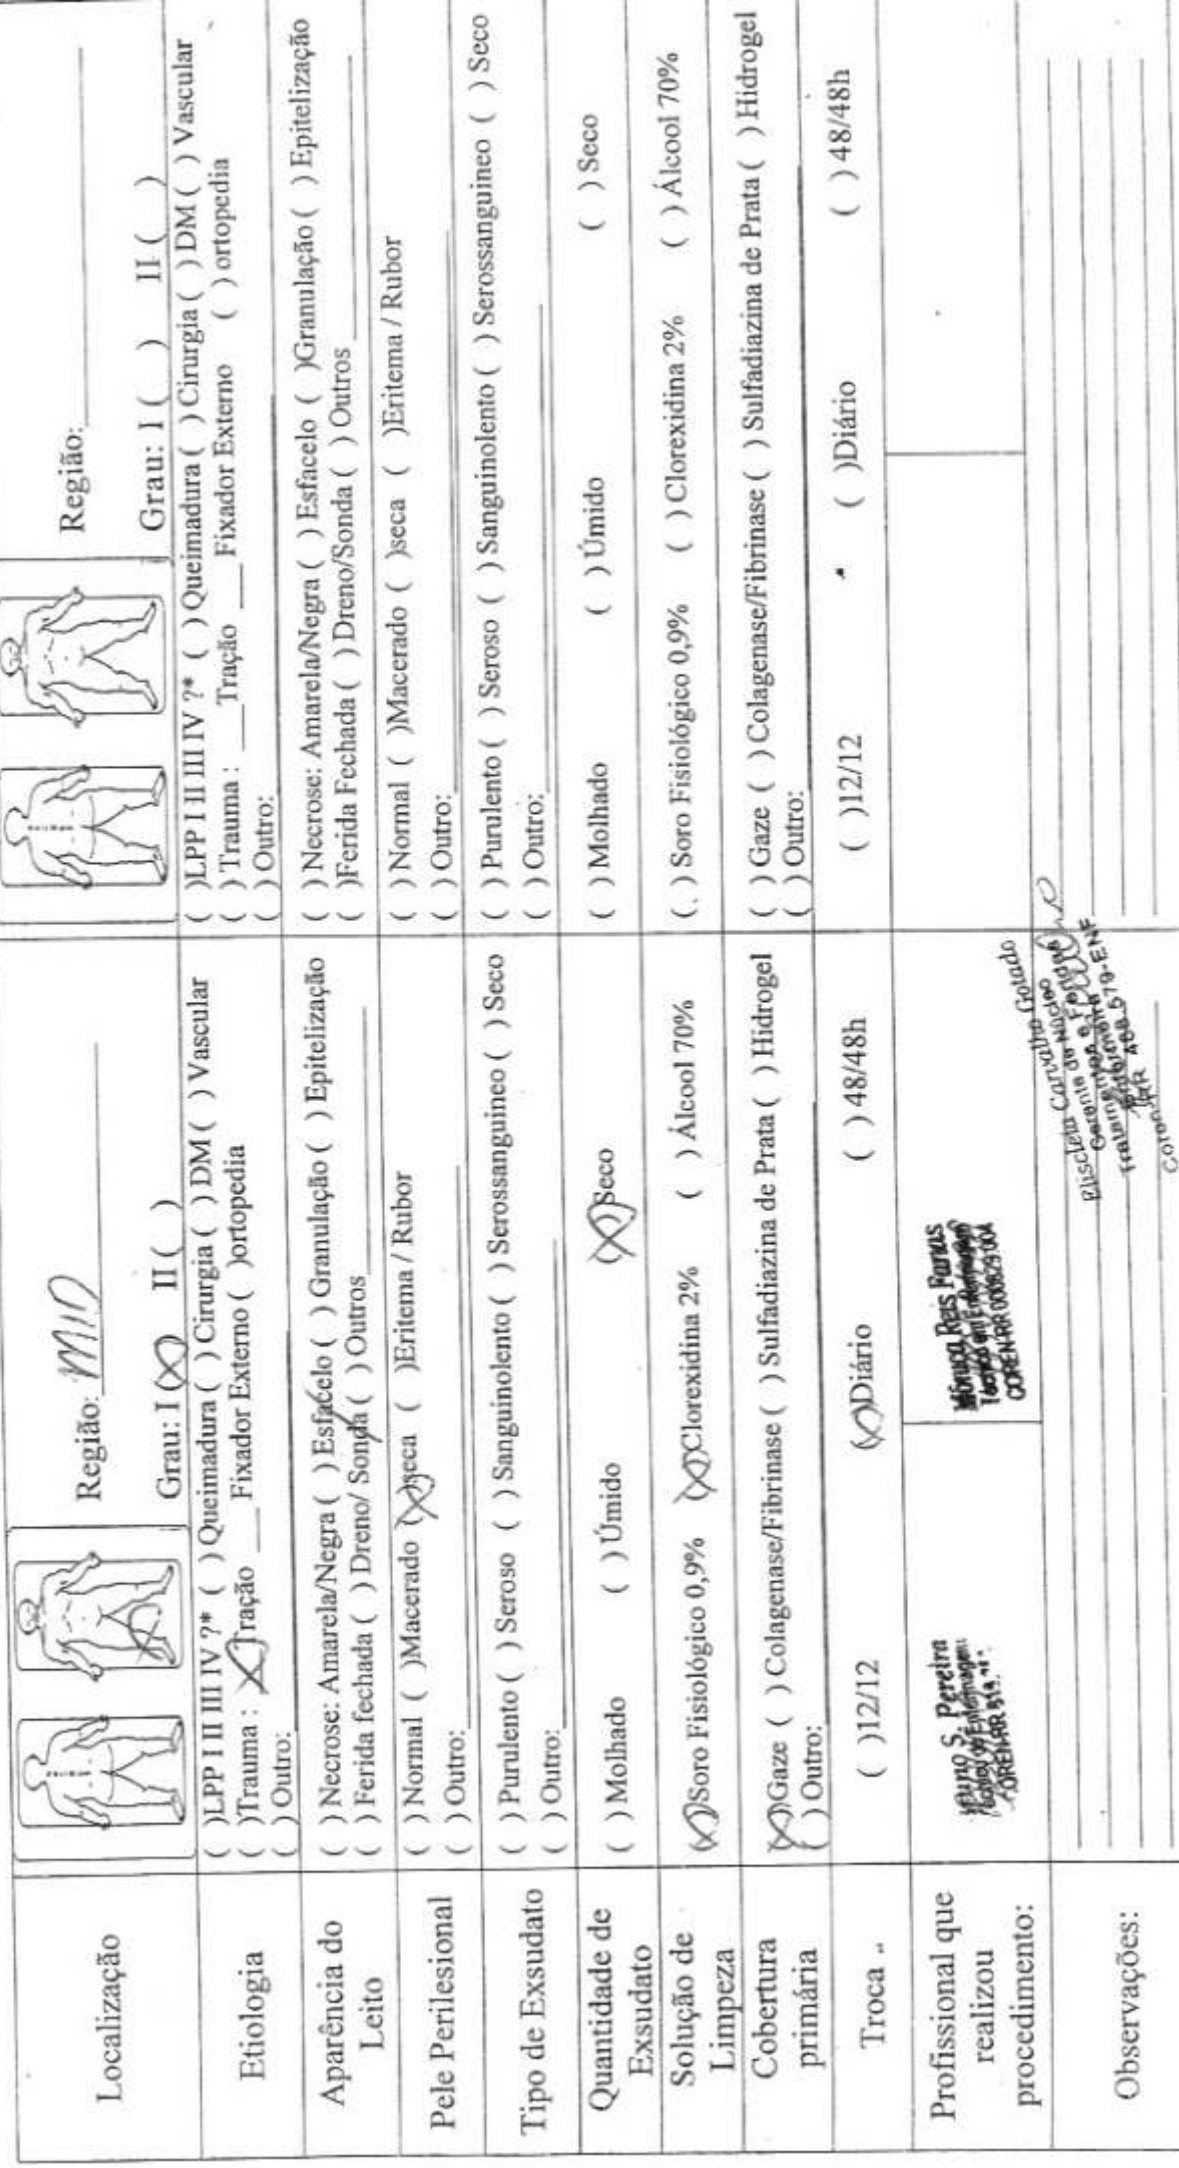 Localização
Região: MID
Grau: I (X) II ( )
Região:
Grau: I ( ) II ( )
Etiologia
( )LPP I II III IV ?* ( ) Queimadura ( ) Cirurgia ( ) DM ( ) Vascular
( )Trauma : X Tração ___Fixador Externo ( )ortopedia
( ) Outro:
( )LPP I II III IV ?* ( ) Queimadura ( ) Cirurgia ( ) DM ( ) Vascular
( ) Trauma : ___Tração ___Fixador Externo ( ) ortopedia
( ) Outro:
Aparência do
Leito
( ) Necrose: Amarela/Negra ( ) Esfacelo ( ) Granulação ( ) Epitelização
( ) Ferida fechada ( ) Dreno/ Sonda ( ) Outros
( ) Necrose: Amarela/Negra ( ) Esfacelo ( )Granulação ( ) Epitelização
( )Ferida Fechada ( ) Dreno/Sonda ( ) Outros
Pele Perilesional
( ) Normal ( )Macerado (X)seca ( )Eritema / Rubor
( ) Outro:
( ) Normal ( )Macerado ( )seca ( )Eritema / Rubor
( ) Outro:
Tipo de Exsudato
( ) Purulento ( ) Seroso ( ) Sanguinolento ( ) Serossanguineo ( ) Seco
( ) Outro:
( ) Purulento ( ) Seroso ( ) Sanguinolento ( ) Serossanguineo ( ) Seco
( ) Outro:
Quantidade de
Exsudato
( ) Molhado ( ) Úmido (X)Seco
( ) Molhado ( ) Úmido ( ) Seco
Solução de
Limpeza
(X)Soro Fisiológico 0,9% (X)Clorexidina 2% ( ) Álcool 70%
( ) Soro Fisiológico 0,9% ( ) Clorexidina 2% ( ) Álcool 70%
Cobertura
primária
(X)Gaze ( ) Colagenase/Fibrinase ( ) Sulfadiazina de Prata ( ) Hidrogel
( ) Outro:
( ) Gaze ( ) Colagenase/Fibrinase ( ) Sulfadiazina de Prata ( ) Hidrogel
( ) Outro:
Troca
( )12/12 (X)Diário ( ) 48/48h
( )12/12 ( )Diário ( ) 48/48h
Profissional que
realizou
procedimento:
S. Pereira
Reis Farias
COREN-RR
Observações:
Carvalho Gotado
Gerente do Núcleo